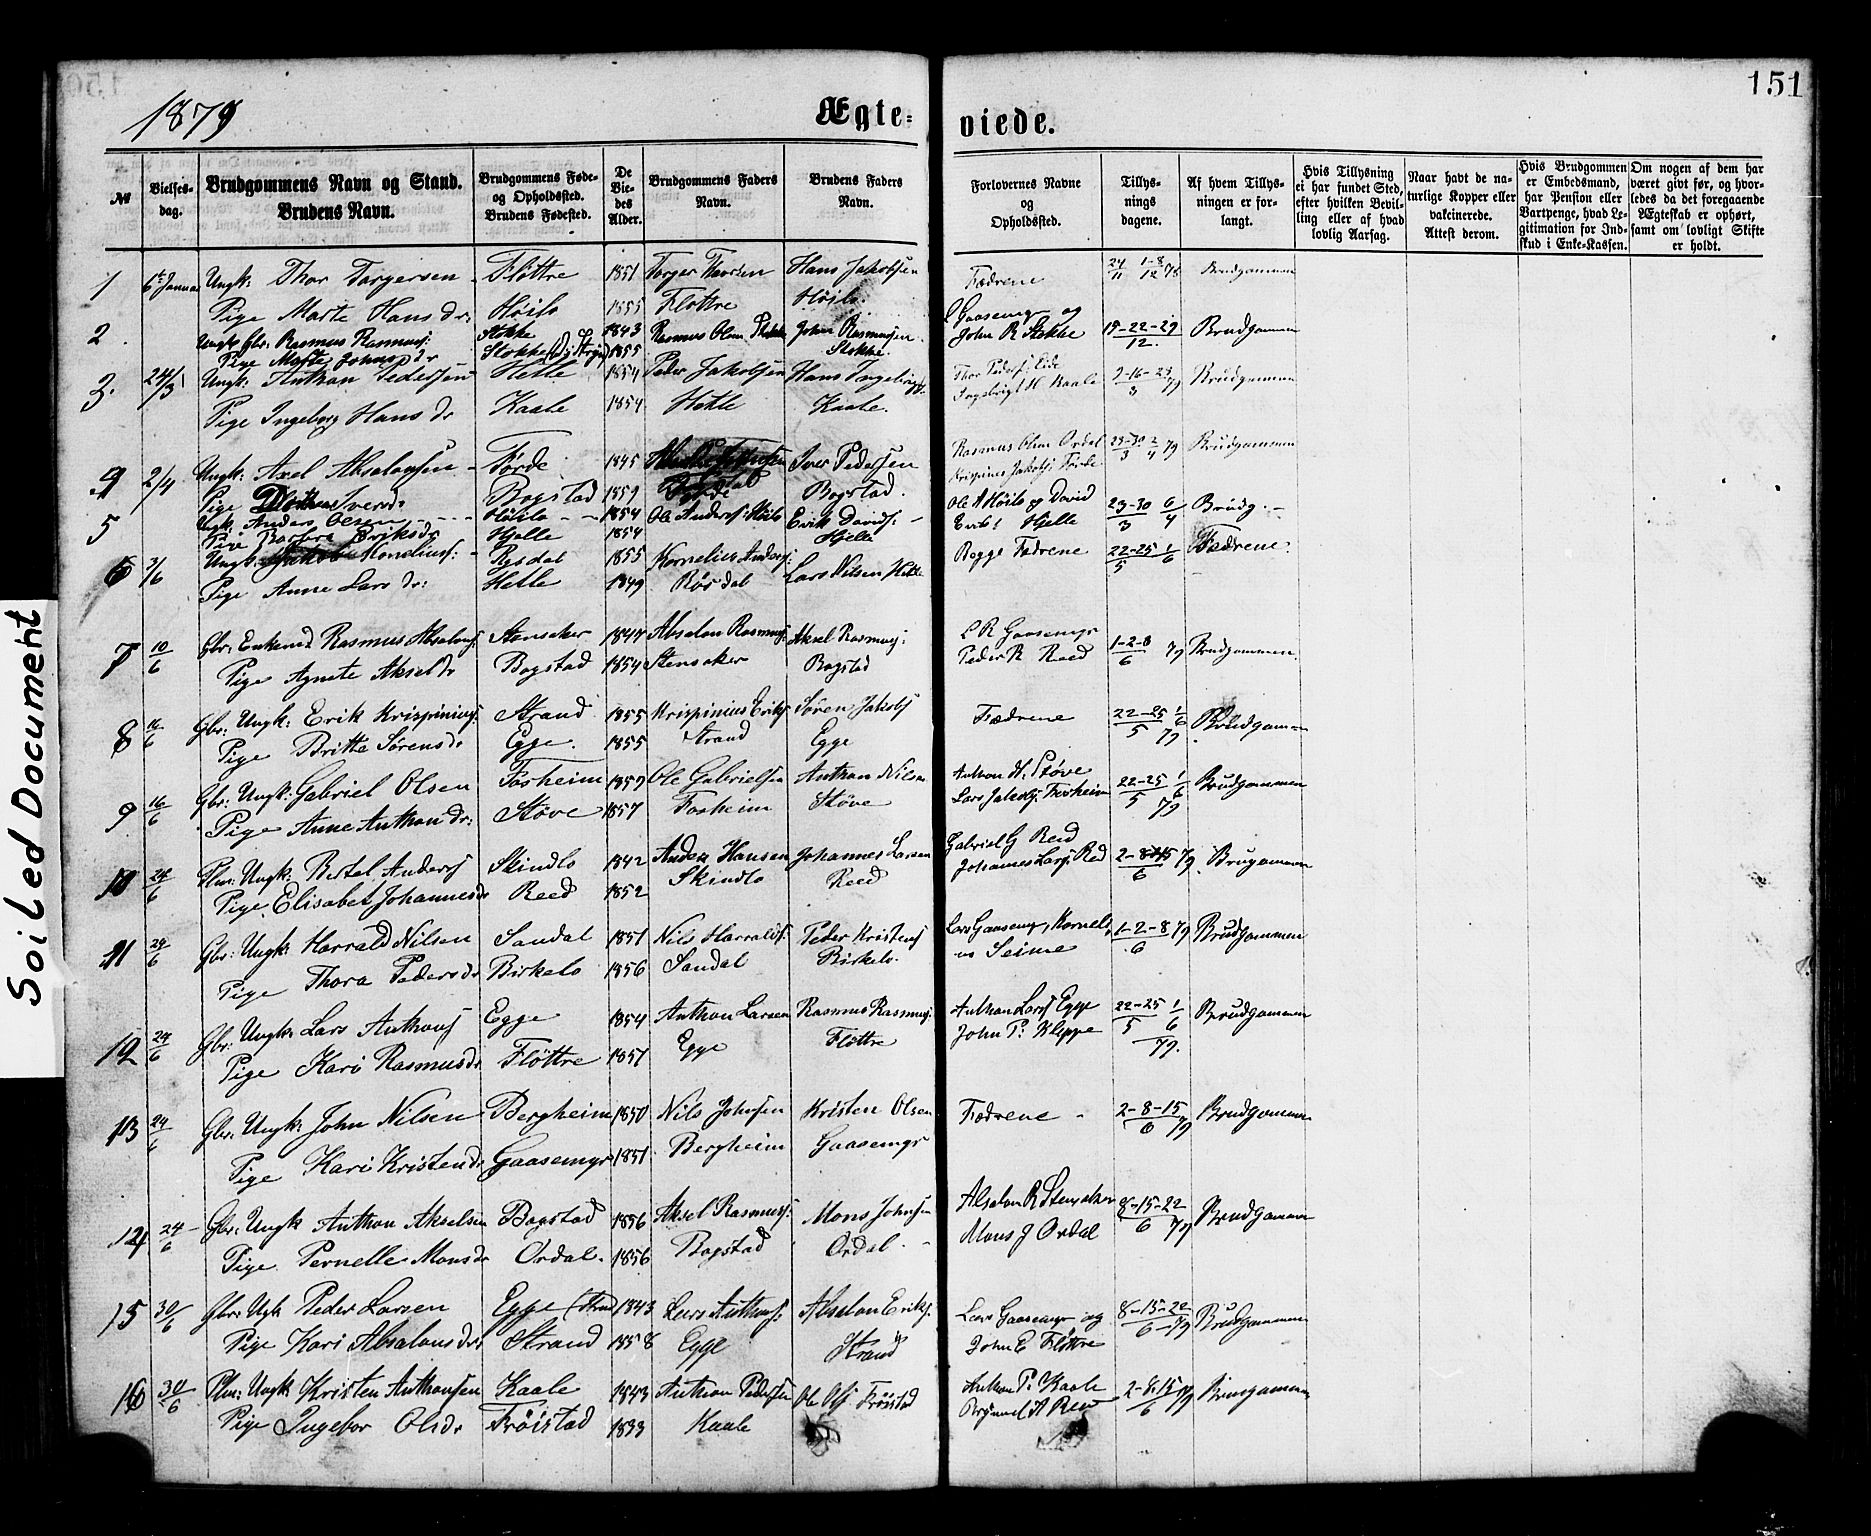 151
1879
Ægte- viede.
№ | Vielses-dag. | Brudgommens Navn og Stand. Brudens Navn. | Brudgommens Føde- og Opholdssted. Brudens Fødested. | De Viedes Alder. | Brudgommens Faders Navn. | Brudens Faders Navn. | Forlovernes Navne og Opholdssted. | Tillysningsdagene. | Af hvem Tillysningen er forlangt. | Hvis Tillysning ei har fundet Sted, efter hvilken Bevilling eller af hvad lovlig Aarsag. | Naar havt de naturlige Kopper eller vakcinerede. Attest derom. | Hvis Brudgommen er Embedsmand, har Pension eller Vartpenge, hvad Legitimation for Indskud i Enke-Kassen. | Om nogen af dem har været givt før, og hvorledes da det foregaaende Ægteskab er ophørt, samt om lovligt Skifte er holdt.
1 | 6te Januar | Ungk: Thor Torgersen | Fløttre | 1851 | Torger Thorsen | Hans Jakobsen | Fædrene | 24/11 1-8/12 78 | Brudgommen
Pige Marte Hansdr: | Høilo | 1855 | Flottre | Høilo
2 | Ungk Gbr: Rasmus Rasmus: | Stokke | 1843 | Rasmus Olsen Stokke | John Rasmussen | L Gaasemyr og John R Stokke | 15-22-29/12 | Brudgommen
Pige Marte Johnsdr | Stokke | 1855 | Stokke
3. | 24/3 | Ungk: Anthon Pedersen | Hetle | 1854 | Peder Jakobsen | Hans Ingebrigts: | Thor Peders: Eide | 2-16-23/3 79 | Brudgommen
Pige Ingeborg Hansdr | Kaale | 1854 | Hetle | Kaale. | Ingebrigt H. Kaale
4 | 2/4 | Ungk: Axel Absalonsen | Førde | 1845 | Iver Pedersen | Rasmus Olsen Ordal | 23-30/3 2/4 79 | Brudgommen
Pige Iversdr | Bogstad | 1859 | Førde | Bogstad. | Krispinus Jakobs: Førde
5 | Ungk: Anders Olsen | Høilo | 1854 | Ole Anders: Høilo | Erik Davids: | Ole A Høilo og David | 23-30/3 6/4 | Brudg.
Pige Barbara Eriksdr | Hjelle | 1854 | Hjelle | Eriks: Hjelle
6 | 3/6 | Ungk: Jakob Kornelius: | Røsdal | 1855 | Kornelius Anders: | Lars Nilsen Hetle | Begge Fædrene | 22-25/5 1/6 | Fædrene.
Pige Anne Larsdr: | Hetle | 1849 | Røsdal
7 | 10/6 | Gbr: Enkemd Rasmus Absalons: | Stensaker | 1847 | Absalon Rasmus: | Aksel Rasmus: | L R Gaasemyr | 1-2-8/6 79 | Brudgommen.
Pige Agnete Akseldr | Bogstad | 1854 | Stensaker | Bogstad | Peder R Reed
8 | 16/6 | Gbr: Ungk: Erik Krispinius: | Strand | 1855 | Krispinius Eriks | Søren Jakobs | Fædrene | 22-25/5 1/6 79 | Brudgommen
Pige Britte Sørensdr | Egge. | 1855 | Strand | Egge
9 | 16/6 | Gbr: Ungk: Gabriel Olsen | Fosheim | 1859 | Ole Gabrielsen | Anthon Nilsen | Anthon N: Støve | 22-25/5 1/6 79 | Brudgommen
Pige Anne Anthondr: | Støve | 1857 | Fosheim | Støve | Lars Jakobs: Fosheim
10 | 24/6 | Plm: Ungk: Betel Anders | Skindlo | 1842 | Anders Hansen | Johannes Larsen | Gabriel G Reed | 2-8-15/6 79 | Brugommen
Pige Elisabet Johannesdr | Reed | 1852 | Skindlo | Reed | Johanes Lars: Red
11 | 24/6 | Gbr: Ungk: Harrald Nilsen | Sandal | 1851 | Nils Harralds: | Peder Kristens | Lars Gaasemyr, Korneli- | 1-2-8/6 79 | Brudgommen
Pige Thora Pedersdr | Birkelo | 1856 | Sandal | Birkelo. | us Seime
12 | 24/6 | Gbr: Ungk: Lars Anthons | Egge | 1854 | Anthon Larsen | Rasmus Rasmus: | Anthon Lars Egge | 22-25/5 1/6 79. | Brudgommen
Pige Kari Rasmusdr | Fløttre | 1857 | Egge | Fløttre | John P: Kleppe
13 | 24/6 | Gbr: Ungk: John Nilsen | Bergheim | 1850 | Nils Johnsen | Kristen Olsen | Fædrene | 2-8-15/6 79 | Brudgommen
Pige Kari Kristendr | Gaasemyr | 1851 | Bergheim | Gaasemyr
14 | 24/6 | Gbr: Ungk Anthon Akselsen | Bogstad | 1856 | Aksel Rasmus: | Mons Johnsen | Absalon R Stensaker | 8-15-22/6 79 | Brudgommen
Pige Pernelle Monsdr | Ordal. | 1856 | Bogstad | Ordal | Mons J Ordal
15 | 30/6 | Gbr: Ungk Peder Larsen | Egge (Strand) | 1843 | Lars Anthons: | Absalon Eriks: | Lars Gaasemyr og | 8-15-22/6 79 | Brudgommen
Pige Kari Absalonsdr | Strand | 1858 | Egge | Strand | John E Fløttre
16 | 30/6 | Plm: Ungk: Kristen Anthonsen | Kaale | 1843 | Anthon Pedersen | Ole Ols Frøistad | Anthon P: Kaale | 2-8-15/6 79 | Brudgommen
Pige Ingebor Olsdr | Frøistad | 1833 | Kaale
Soiled Document